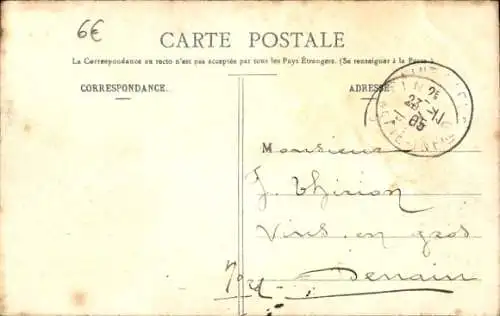 6€
CARTE POSTALE
La Correspondance au recto n'est pas acceptée par tous les Pays Étrangers. (Se renseigner à la Poste.)
CORRESPONDANCE
ADRESSE
23 XI
05
Monsieur
J. Thirion
Vins en gros
Denain
Nord